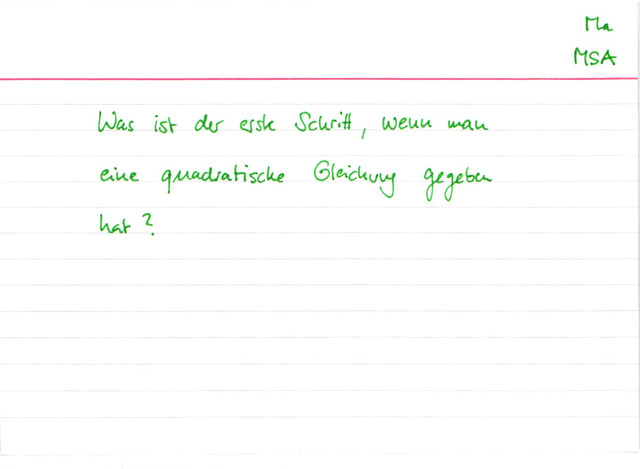 Ma
MSA
Was ist der erste Schritt, wenn man
eine quadratische Gleichung gegeben
hat?